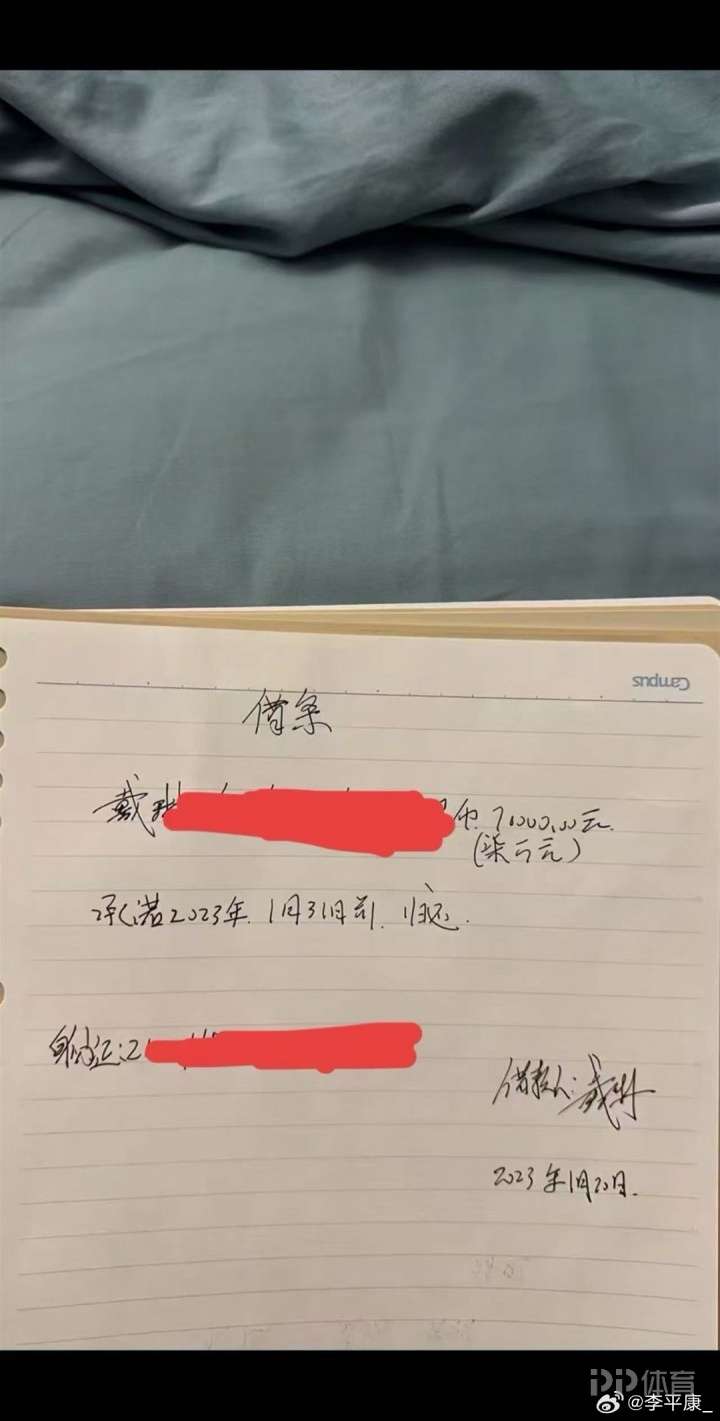 Campus
借条
戴琳 币 70000.00元.
(柒万元)
承诺2023年.1月31日前.归还.
身份证:2
借款人:戴琳
2023年1月20日.
PP体育
@李平康_